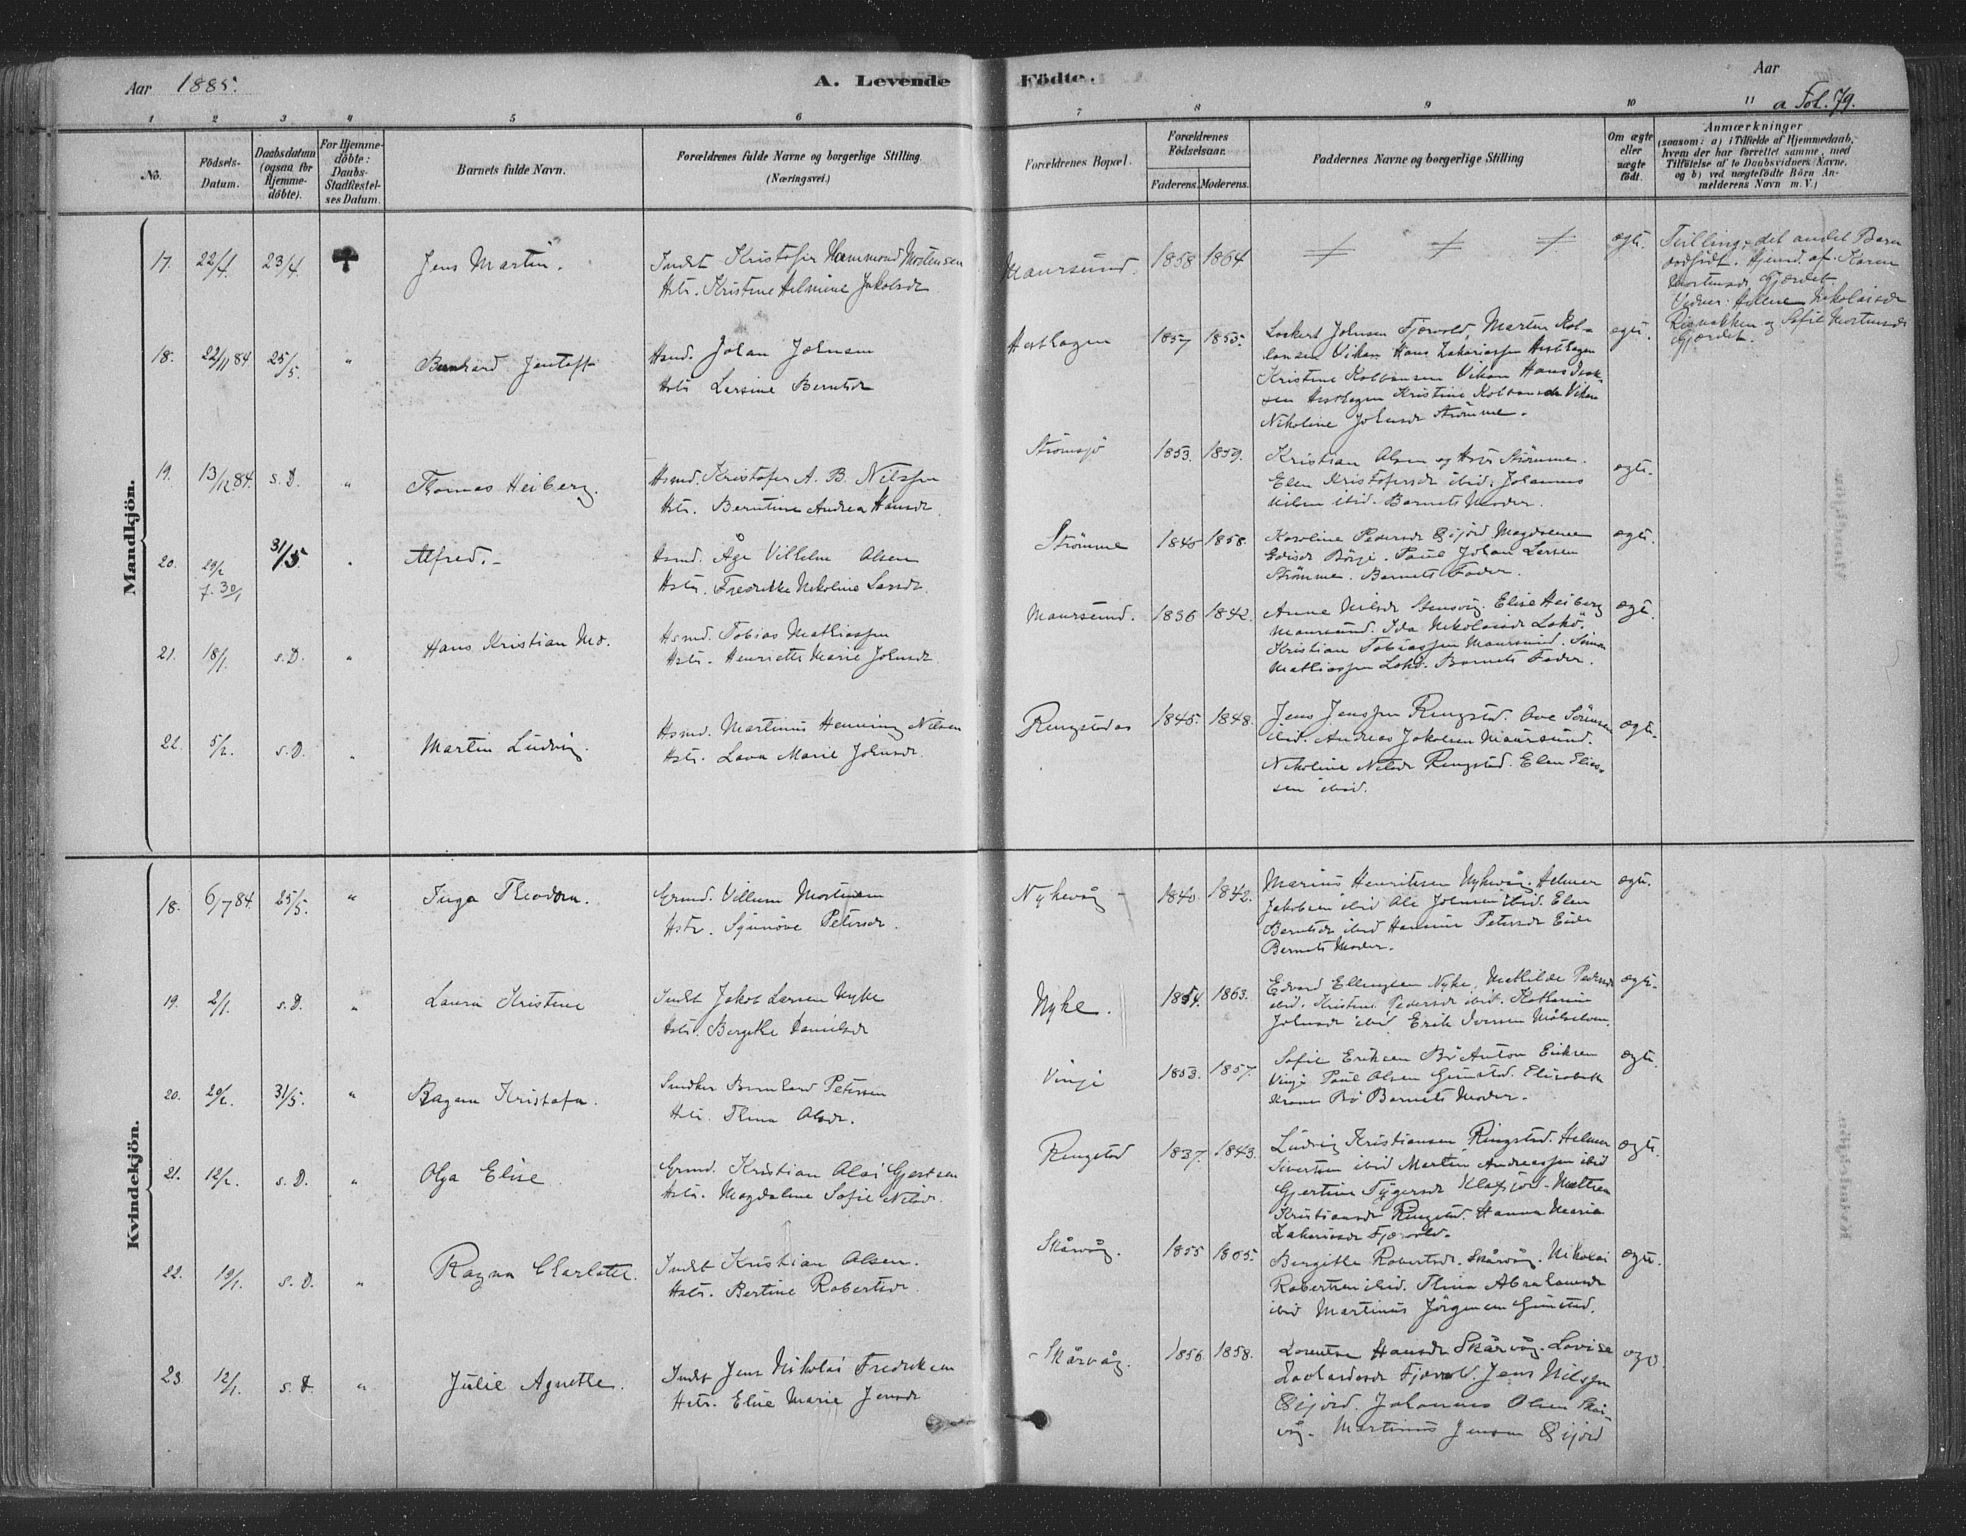 Aar 1885.
A. Levende Födte.
Aar
a Fol. 79.
1 2 3 4 5 6 7 8 9 10 11
No.
Födsels-Datum.
Daabsdatum (ogsaa for Hjemme-döbte).
For Hjemme-döbte: Daabs-Stadfæstel-ses Datum.
Barnets fulde Navn.
Forældrenes fulde Navne og borgerlige Stilling.
(Næringsvei.)
Forældrenes Bopæl.
Forældrenes Födselsaar.
Faderens. Moderens.
Faddernes Navne og borgerlige Stilling
Om ægte eller uægte födt.
Anmærkninger
(saasom: a) i Tilfælde af Hjemmedaab,
hvem der har forrettet samme, med
Tilföielse af to Daabsvidners Navne,
og b) ved uægtefödte Börn An-
melderens Navn m. V.)
Mandkjön.
17. 22/4 23/4 Jens Martin.
Indst Kristofer Hammond Mortensen
Hstr. Kristine Helmine Jakobsdr
Maursund. 1858 1864
ægte.
Tvilling, det andet Barn
dødfødt. Hjemd. af Karen
Mortensdr Gjærdet.
Vidner: Helene Nikolaisdr
og Sofie Mortensdr
Gjærdet.
18. 22/11 84 25/5. "
Hsmd. Johan Johnsen
Hstr Lersine Berntsdr
Hesthagen 1857 1855.
Lockert Johnsen Fjærvold, Martin Kol-
bensen Vikan Hans Zakariassen Hesthagen
Kristine Kolbensen Vikan Hans Isak-
sen Hesthagen Kristine Kolbensdr Vikan
Nikoline Johnsdr Strömme.
ægte.
19. 13/12 84. s.D. " Thomas Heiberg.
Hsmd. Kristofer A. B. Nilssen
Hstr. Berntine Andrea Hansdr.
Strömsjö 1853. 1859.
Kristian Olsen og Hstr Strömme.
Elen Kristofersdr ibid. Johannes
Nilsen ibid. Barnets Moder.
ægte.
20. 29/2 f. 30/1 31/5 " Alfred.
Hsmd. Åge Vilhelm Olsen
Hstr. Fredrikke Nikoline Larsdr.
Strömme 1845 1858.
Karoline Pedersdr Eijord Magdalene
Börje. Paul Johan Larsen
Strömme. Barnets Fader.
ægte.
21. 18/1. s.D. " Hans Kristian Mo.
Hsmd. Tobias Mathiassen
Hstr. Henriette Marie Johnsdr
Maursund. 1836 1842.
Anne Nilsdr Stensvåg. Elise Heiberg
Maursund. Ida Nikolaisdr
Kristian Tobiassen Maursund. Simon
Mathiassen Barnets Fader.
ægte.
22. 5/2. s.D. " Martin Ludvig
Hsmd. Martinus Henning Nilsen
Hstr. Lava Marie Johnsdr
Ringstadas 1845. 1848.
Jens Jenssen Ringstad. Ove Sörensen
ibid. Andreas Jakobsen Maursund.
Nikoline Nilsdr Ringstad. Elen Elias-
sen ibid.
ægte.
Kvindekjön.
18. 6/7 84. 25/5. " Inga Theodora.
Grmd. Villum Mortensen
Hstr. Sÿnnöve Petersdr.
Nykevåg 1840. 1842.
Marius Henriksen Nykevåg. Helmer
Jakobsen ibid Ole Johnsen ibid. Elen
Berntsdr ibid Hansine Petersdr
Barnets Moder.
ægte.
19. 2/1. s.D. " Laura Kristine
Indst Jakob Larsen Nyke
Hstr. Bergithe Danielsdr
Nyke. 1854. 1863.
Edvard Ellingsen Nyke, Mathilde Pedersdr
ibid. Kristine Pedersdr ibid. Kathrine
Johnsdr ibid Erik Iversen Målselven.
ægte.
20. 29/2. 31/5. " Ragna Kristofa.
Snedker Bernhard Petersen
Hstr. Thina Olsdr.
Vinje 1853. 1857.
Sofie Eriksen Bö Anton Eriksen
Vinje Paul Olsen Gimstad. Elisabeth
Krane Bö Barnets Moder.
ægte.
21. 12/2. s.D. " Olga Elise
Grmd. Kristian Olai Gjertsen
Hstr. Magdalene Sofie Nilsdr.
Ringstad 1837. 1843.
Ludvig Kristiansen Ringstad. Helmer
Sivertsen ibid Martin Andreassen ibid
Gjertine Klafjord. Mathea
Kristiansdr Ringstad. Hanna Maria
Zakariasdr Fjærvold.
ægte.
22. 19/1. s.D. " Ragna Charlotte.
Indst Kristian Olsen.
Hstr. Bertine Robertsdr.
Skårvåg. 1855 1865.
Bergithe Robertsdr. Skårvåg. Nikolai
Robertsen ibid. Thina Abrahamsdr
ibid Martinus Jörgensen Gimstad.
ægte.
23. 12/1. s.D. " Julie Agnethe.
Indst Jens Nikolai Fredriksen
Hstr. Elise Marie Jensdr
Skårvåg. 1856. 1858.
Lorentse Hansdr Skårvåg. Lovise
Zachariasdr Fjærvold. Jens Nilssen
Eijord. Johannes Olsen Skår-
våg. Martinus Jensen Eijord